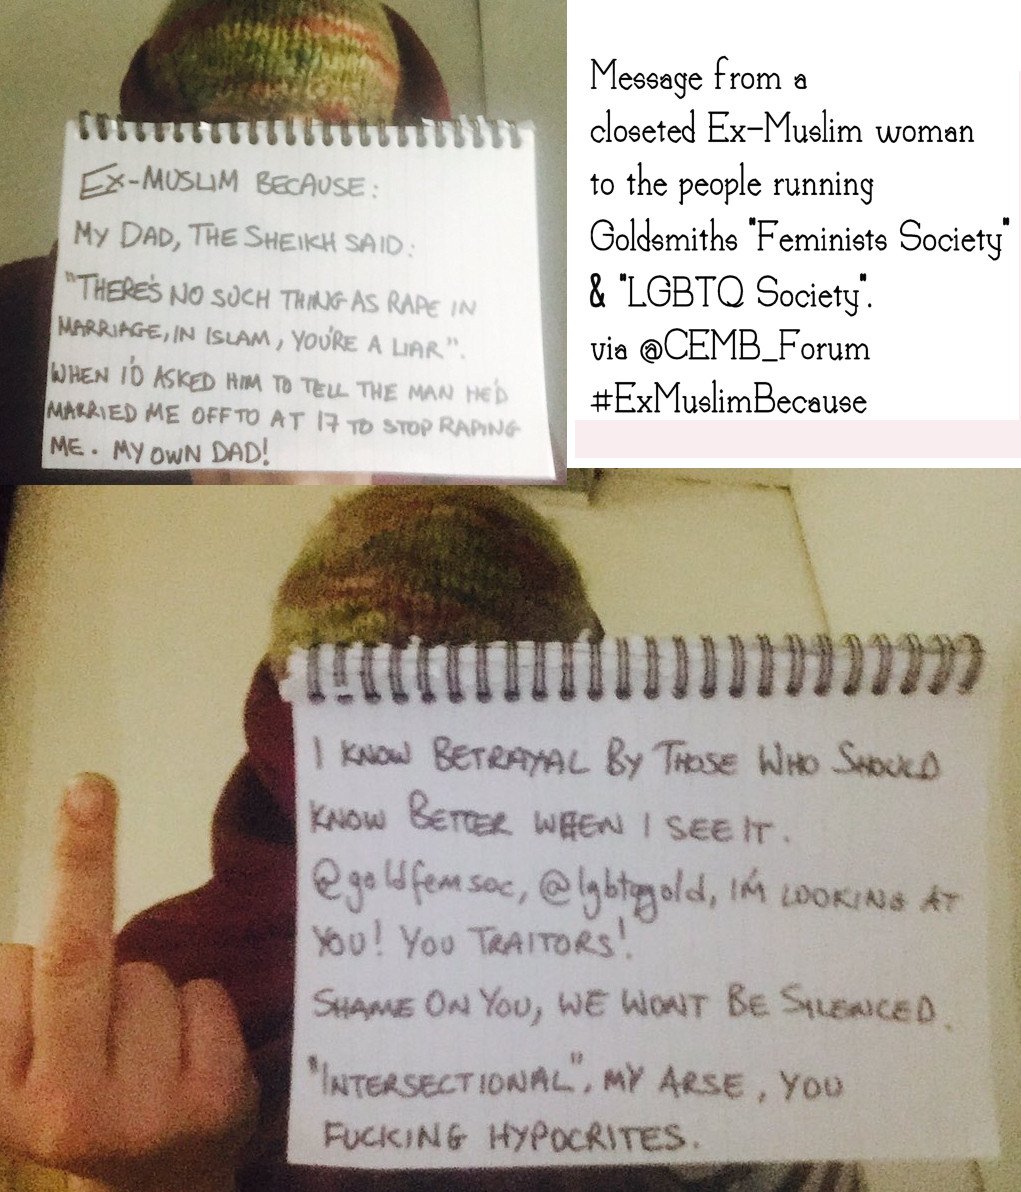 EX-MUSLIM BECAUSE:
MY DAD, THE SHEIKH SAID:
"THERE'S NO SUCH THING AS RAPE IN
MARRIAGE, IN ISLAM, YOU'RE A LIAR".
WHEN I'D ASKED HIM TO TELL THE MAN HE'D
MARRIED ME OFF TO AT 17 TO STOP RAPING
ME. MY OWN DAD!
Message from a
closeted Ex-Muslim woman
to the people running
Goldsmiths "Feminists Society"
& "LGBTQ Society".
via @CEMB_Forum
#ExMuslimBecause
I KNOW BETRAYAL BY THOSE WHO SHOULD
KNOW BETTER WHEN I SEE IT.
@goldfemsoc, @lgbtqgold, I'M LOOKING AT
YOU! YOU TRAITORS!
SHAME ON YOU, WE WONT BE SILENCED.
"INTERSECTIONAL", MY ARSE, YOU
FUCKING HYPOCRITES.